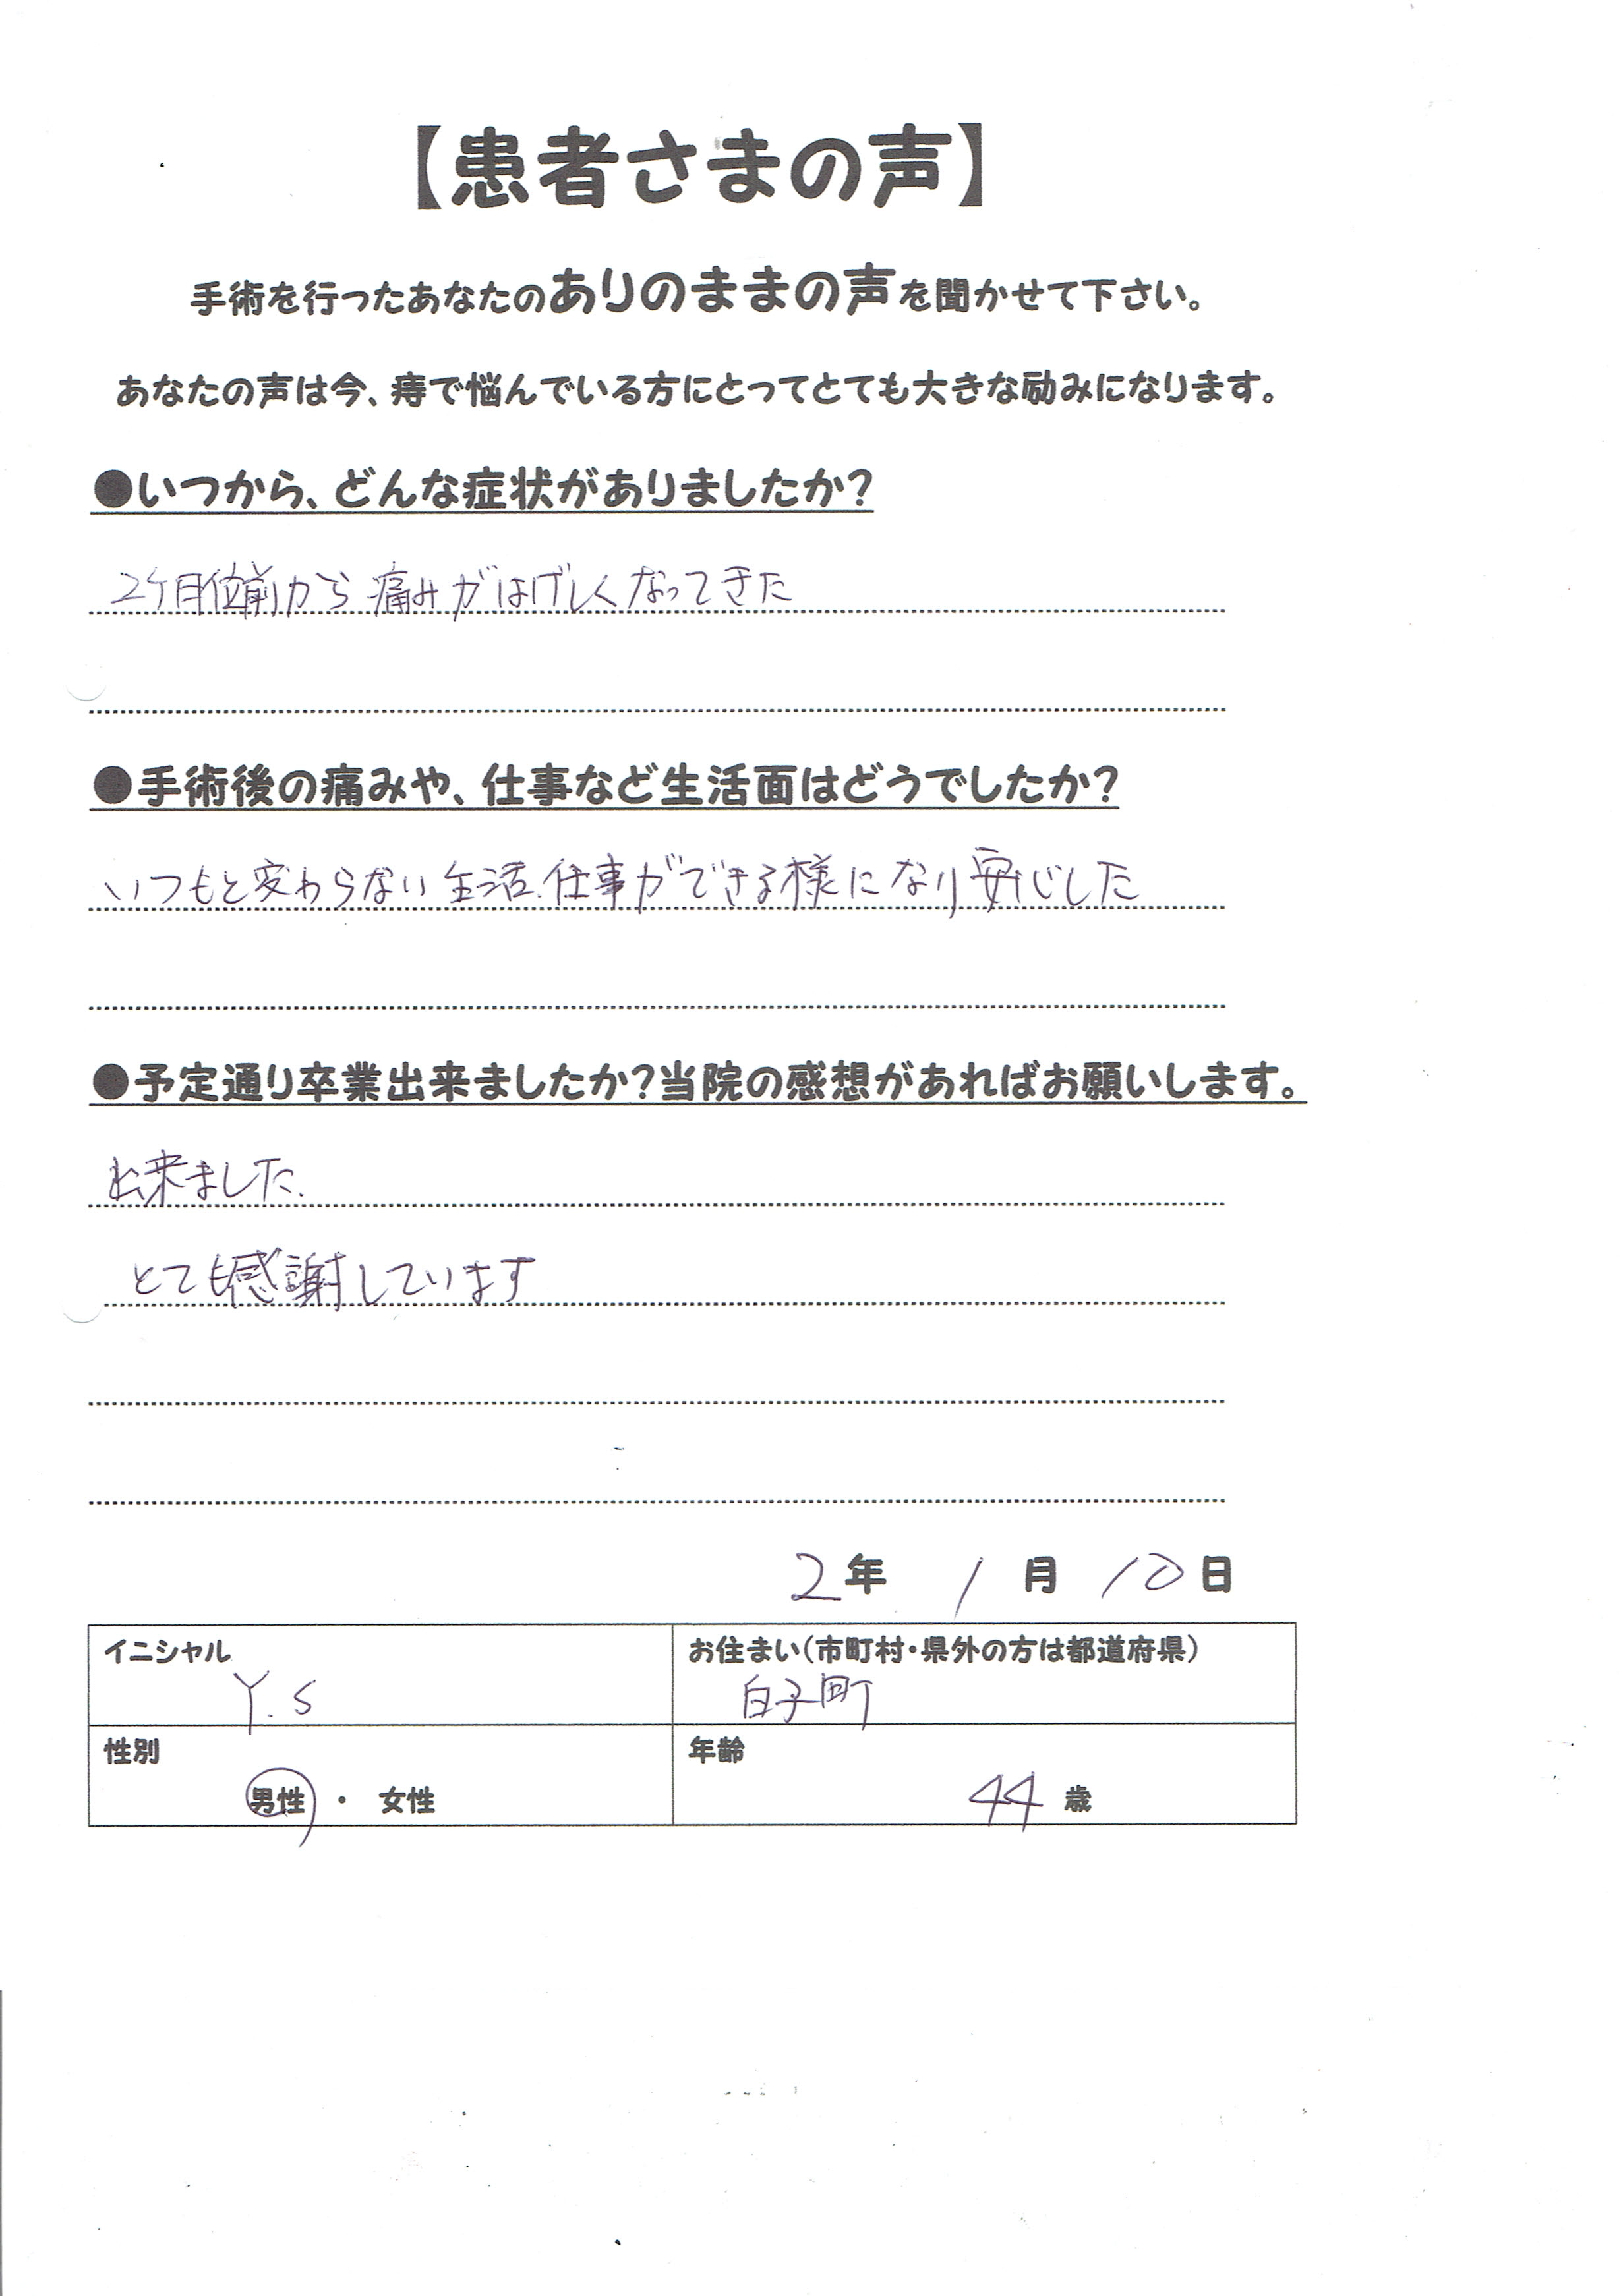 【患者さまの声】
手術を行ったあなたのありのままの声を聞かせて下さい。
あなたの声は今、痔で悩んでいる方にとってとても大きな励みになります。
●いつから、どんな症状がありましたか？
2ヶ月位前から痛みがはげしくなってきた
●手術後の痛みや、仕事など生活面はどうでしたか？
いつもと変わらない生活、仕事ができる様になり安心した
●予定通り卒業出来ましたか？当院の感想があればお願いします。
出来ました。
とても感謝しています
2年 1月 10日
イニシャル お住まい（市町村・県外の方は都道府県）
Y.S 白子町
性別 年齢
男性 ・ 女性 44 歳